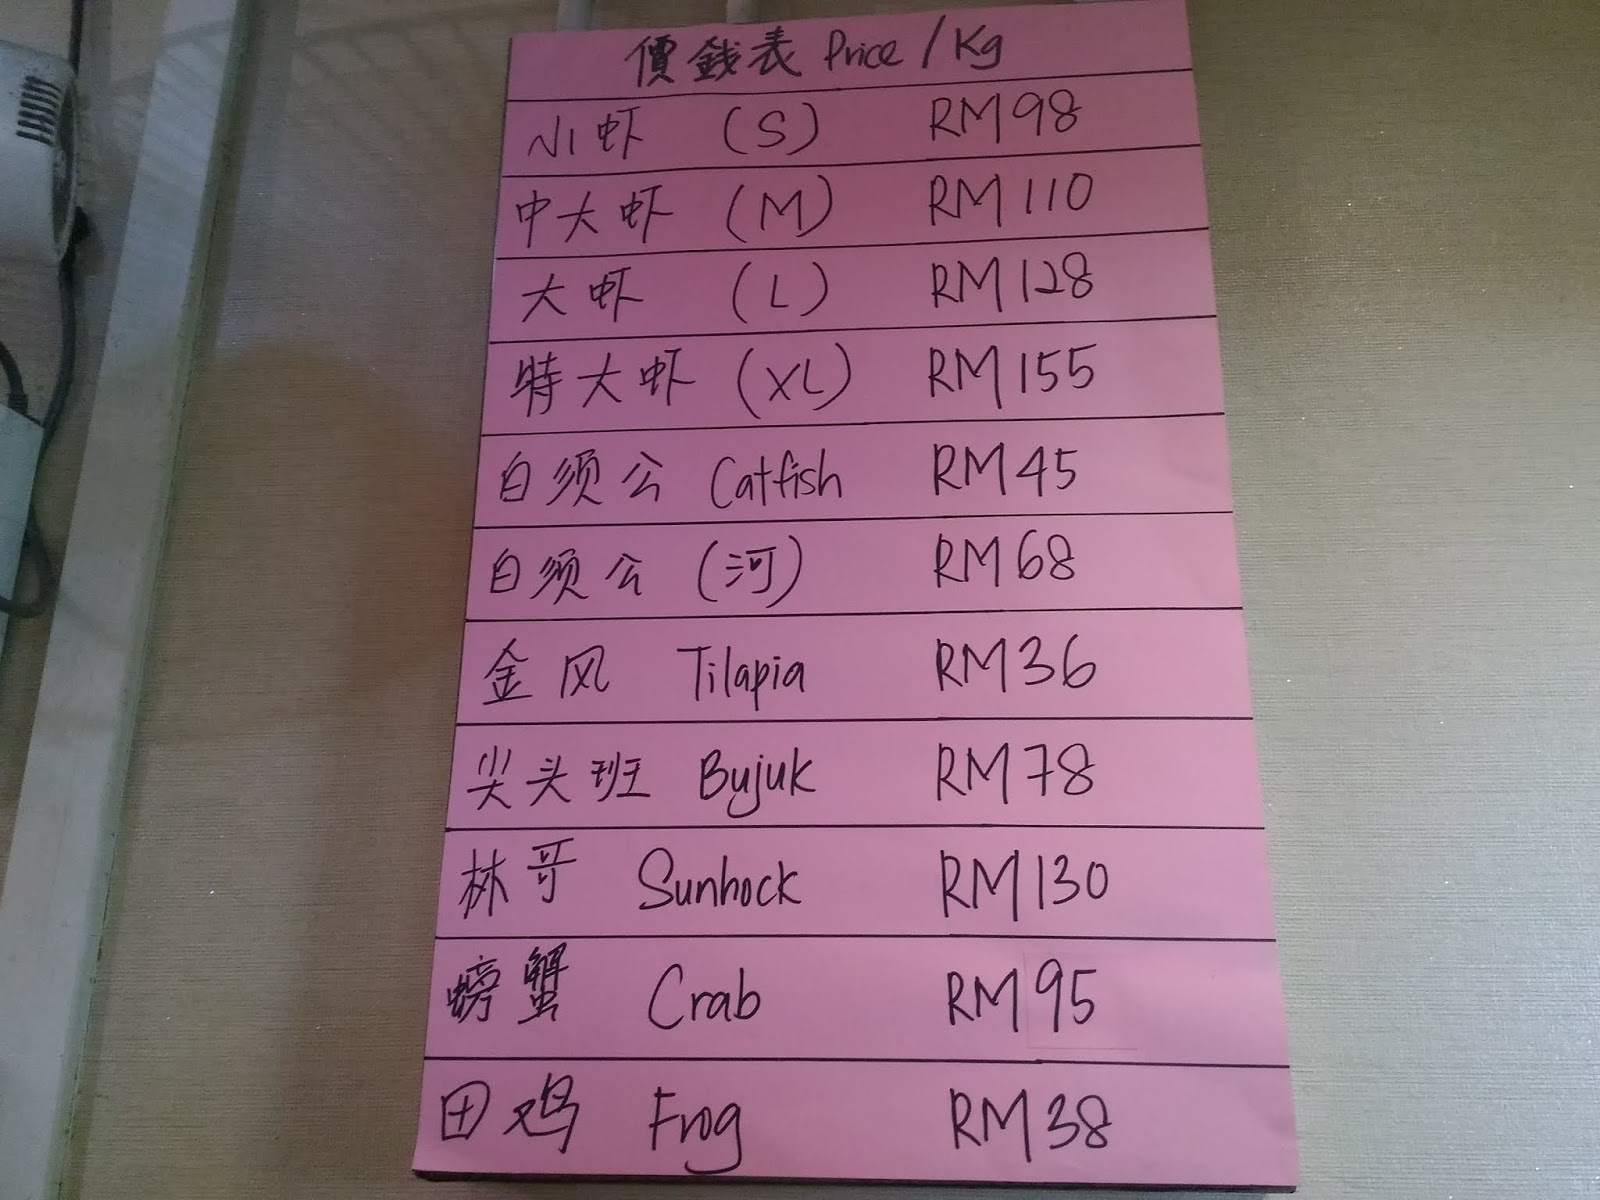 價錢表 Price / Kg
小虾 (S) RM 98
中大虾 (M) RM 110
大虾 (L) RM 128
特大虾 (XL) RM 155
白须公 Catfish RM 45
白须公 (河) RM 68
金风 Tilapia RM 36
尖头班 Bujuk RM 78
林哥 Sunhock RM 130
螃蟹 Crab RM 95
田鸡 Frog RM 38